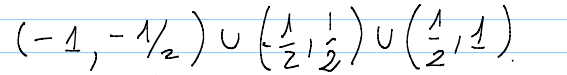 (-1, -1/2) ∪ (-1/2, 1/2) ∪ (1/2, 1)